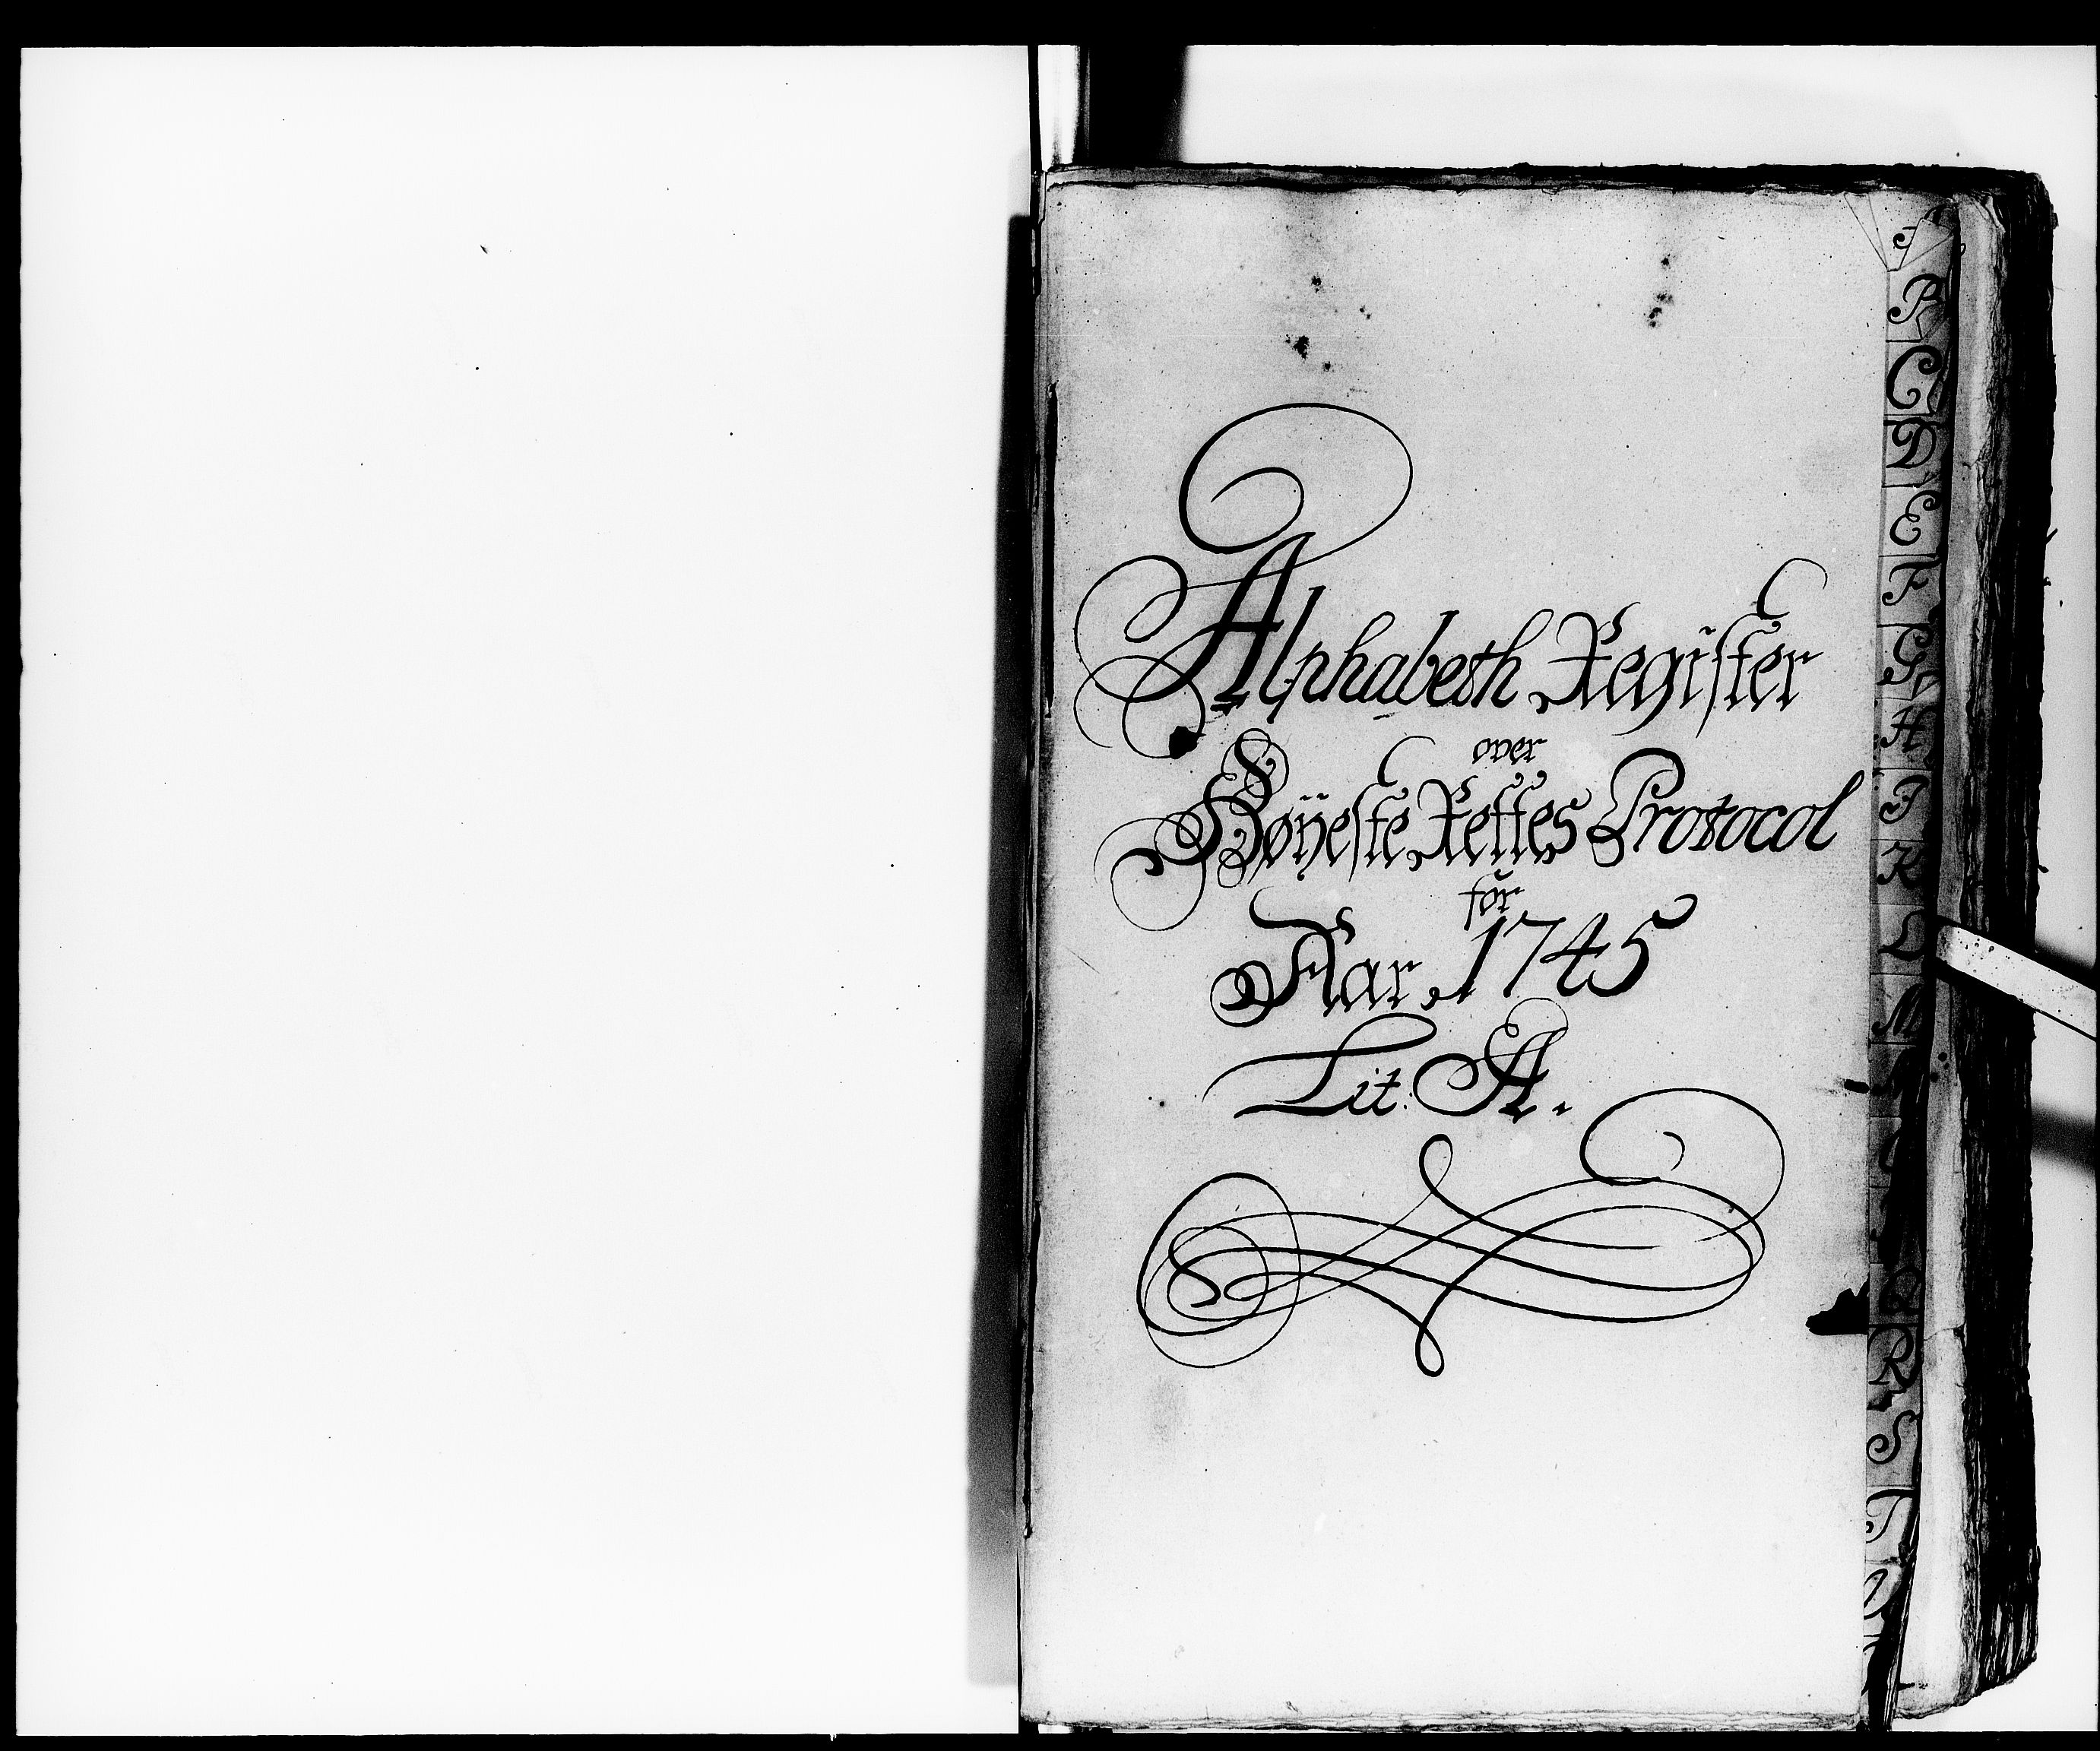 Alphabeth Register
over
Høÿeste Rettes Protocol
for
Aar 1745
Lit: A.
C
D
E
F
G
H
I
K
L
M
R
S
T